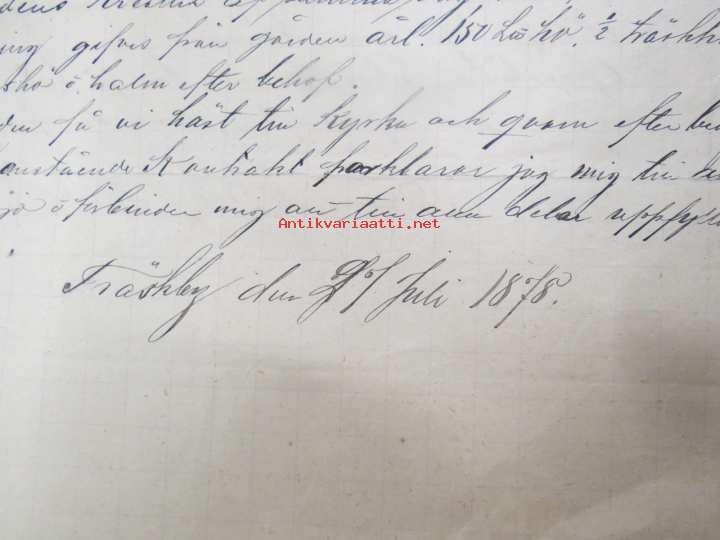 ing gifves från gården årl. 150 L℔ hö, ½ träskh
shö o. halm efter behof.
den få vi häst till Kyrka och qvarn efter be
anstående Kontrakt förklarar jag mig till
jd o förbinder mig att till alla delar uppfyl
Antikvariaatti.net
Träskby den 27 Juli 1878.